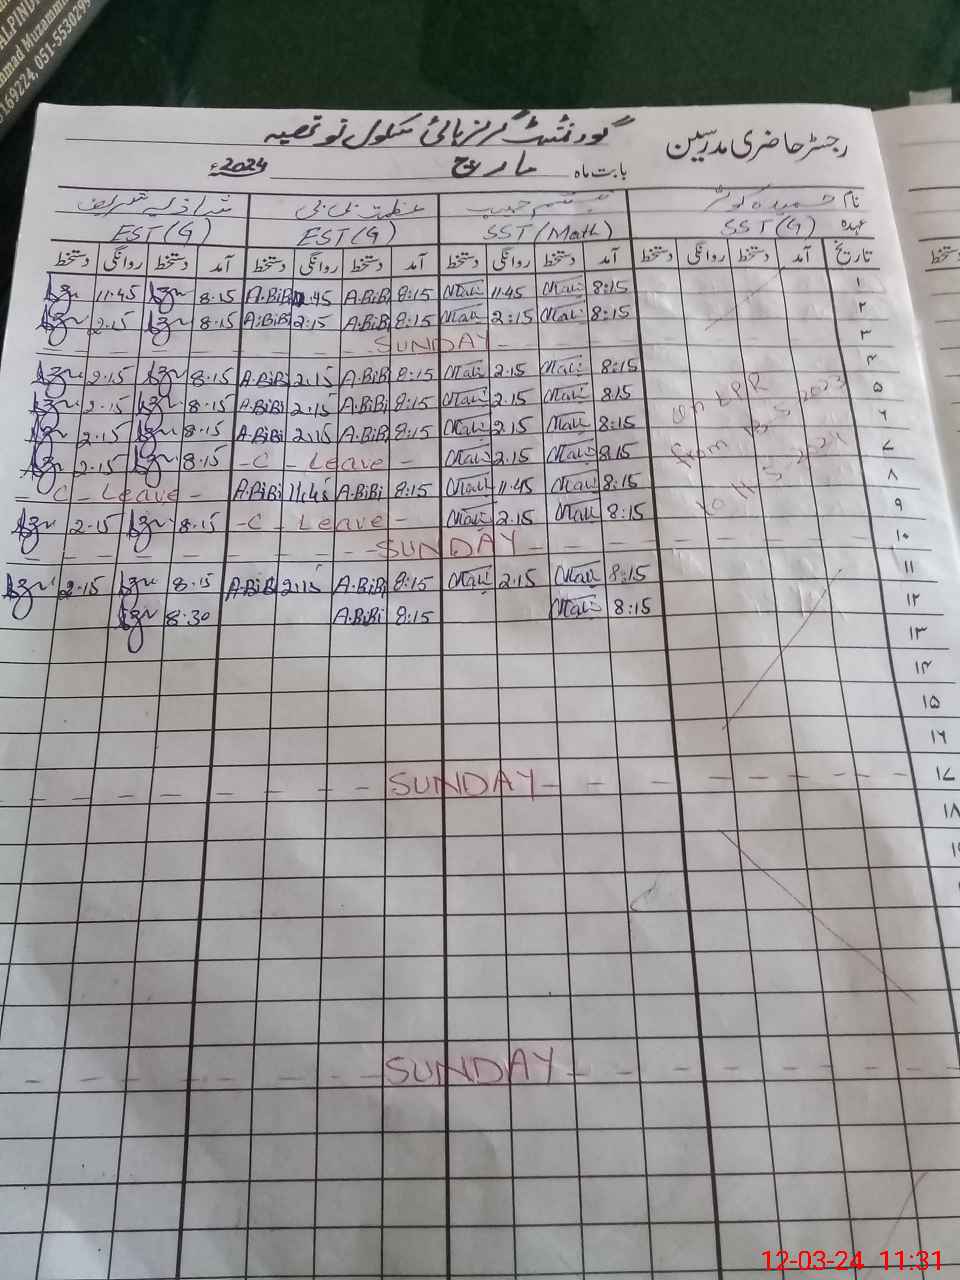 ALPINDI
ammad Muzammi
5169224, 051-5530299
رجسٹر حاضری مدرسین گورنمنٹ گرلز ہائی سکول نو قصبہ
بابت ماہ مارچ 2024ء
نام حمیدہ کوثر تبسم حبیب عظمت بی بی شازیہ شریف
عہدہ SST (G) SST (Math) EST (G) EST (G)
تاریخ آمد دستخط روانگی دستخط آمد دستخط روانگی دستخط آمد دستخط روانگی دستخط آمد دستخط روانگی دستخط
۱ 8:15 11.45 8:15 A.BiBi .45 A.BiB 8.15 11.45
۲ 8:15 2:15 8:15 A.BiBi 2:15 A.BiBi 8.15 2.15
۳ SUNDAY
۴ 8:15 2.15 8:15 A.BiBi 2.15 A.BiBi 8.15 2.15
۵ 8.15 2.15 8:15 A.BiBi 2.15 A.BiBi 8.15 2.15
۶ 8:15 2.15 8:15 A.BiBi 2.15 A.BiBi 8.15 2.15
۷ 8.15 2.15 - C - Leave - 8.15 2.15
۸ 8:15 11.45 8:15 A.BiBi 11.45 A.BiBi - C - Leave -
۹ 8:15 2.15 - C - Leave - 8.15 2.15
on LPR
from 12-5-2023
to 11-5-2024
۱۰ SUNDAY
۱۱ 8:15 2.15 8:15 A.BiBi 2:15 A.BiB 8.15 2.15
۱۲ 8:15 8:15 A.BiBi 8.30
۱۳
۱۴
۱۵
۱۶
۱۷ SUNDAY
۱۸
SUNDAY
12-03-24 11:31